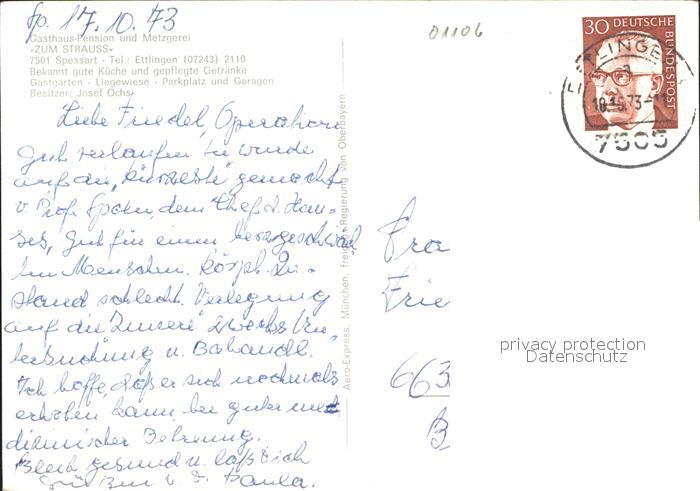 Sp. 17.10.73
Gasthaus-Pension und Metzgerei
»ZUM STRAUSS«
7501 Spessart - Tel.: Ettlingen (07243) 2110
Bekannt gute Küche und gepflegte Getränke
Gastgarten - Liegewiese - Parkplatz und Garagen
Besitzer: Josef Ochs
Liebe Friedel, Operation
gut verlaufen. Es wurde
auf die "kürzeste" gemacht
v. Prof. dem Chef d. Hau-
ses, gut für einen herzgeschwäch
ten Menschen. Körpl. Zu-
stand schlecht. Verlegung
auf die "Innere" zwecks Un-
tersuchung u. Behandl.
Ich hoffe, daß er sich nochmals
erholen kann bei guter me
dizinischer Betreuung.
Bleib gesund u. laß Dich
grüßen v. D. Paula.
Aero-Express, München, freigeg. Regierung von Oberbayern
01106
30 DEUTSCHE
BUNDESPOST
ETTLINGE
18.10.73
7505
Fra
Frie
663
privacy protection
Datenschutz